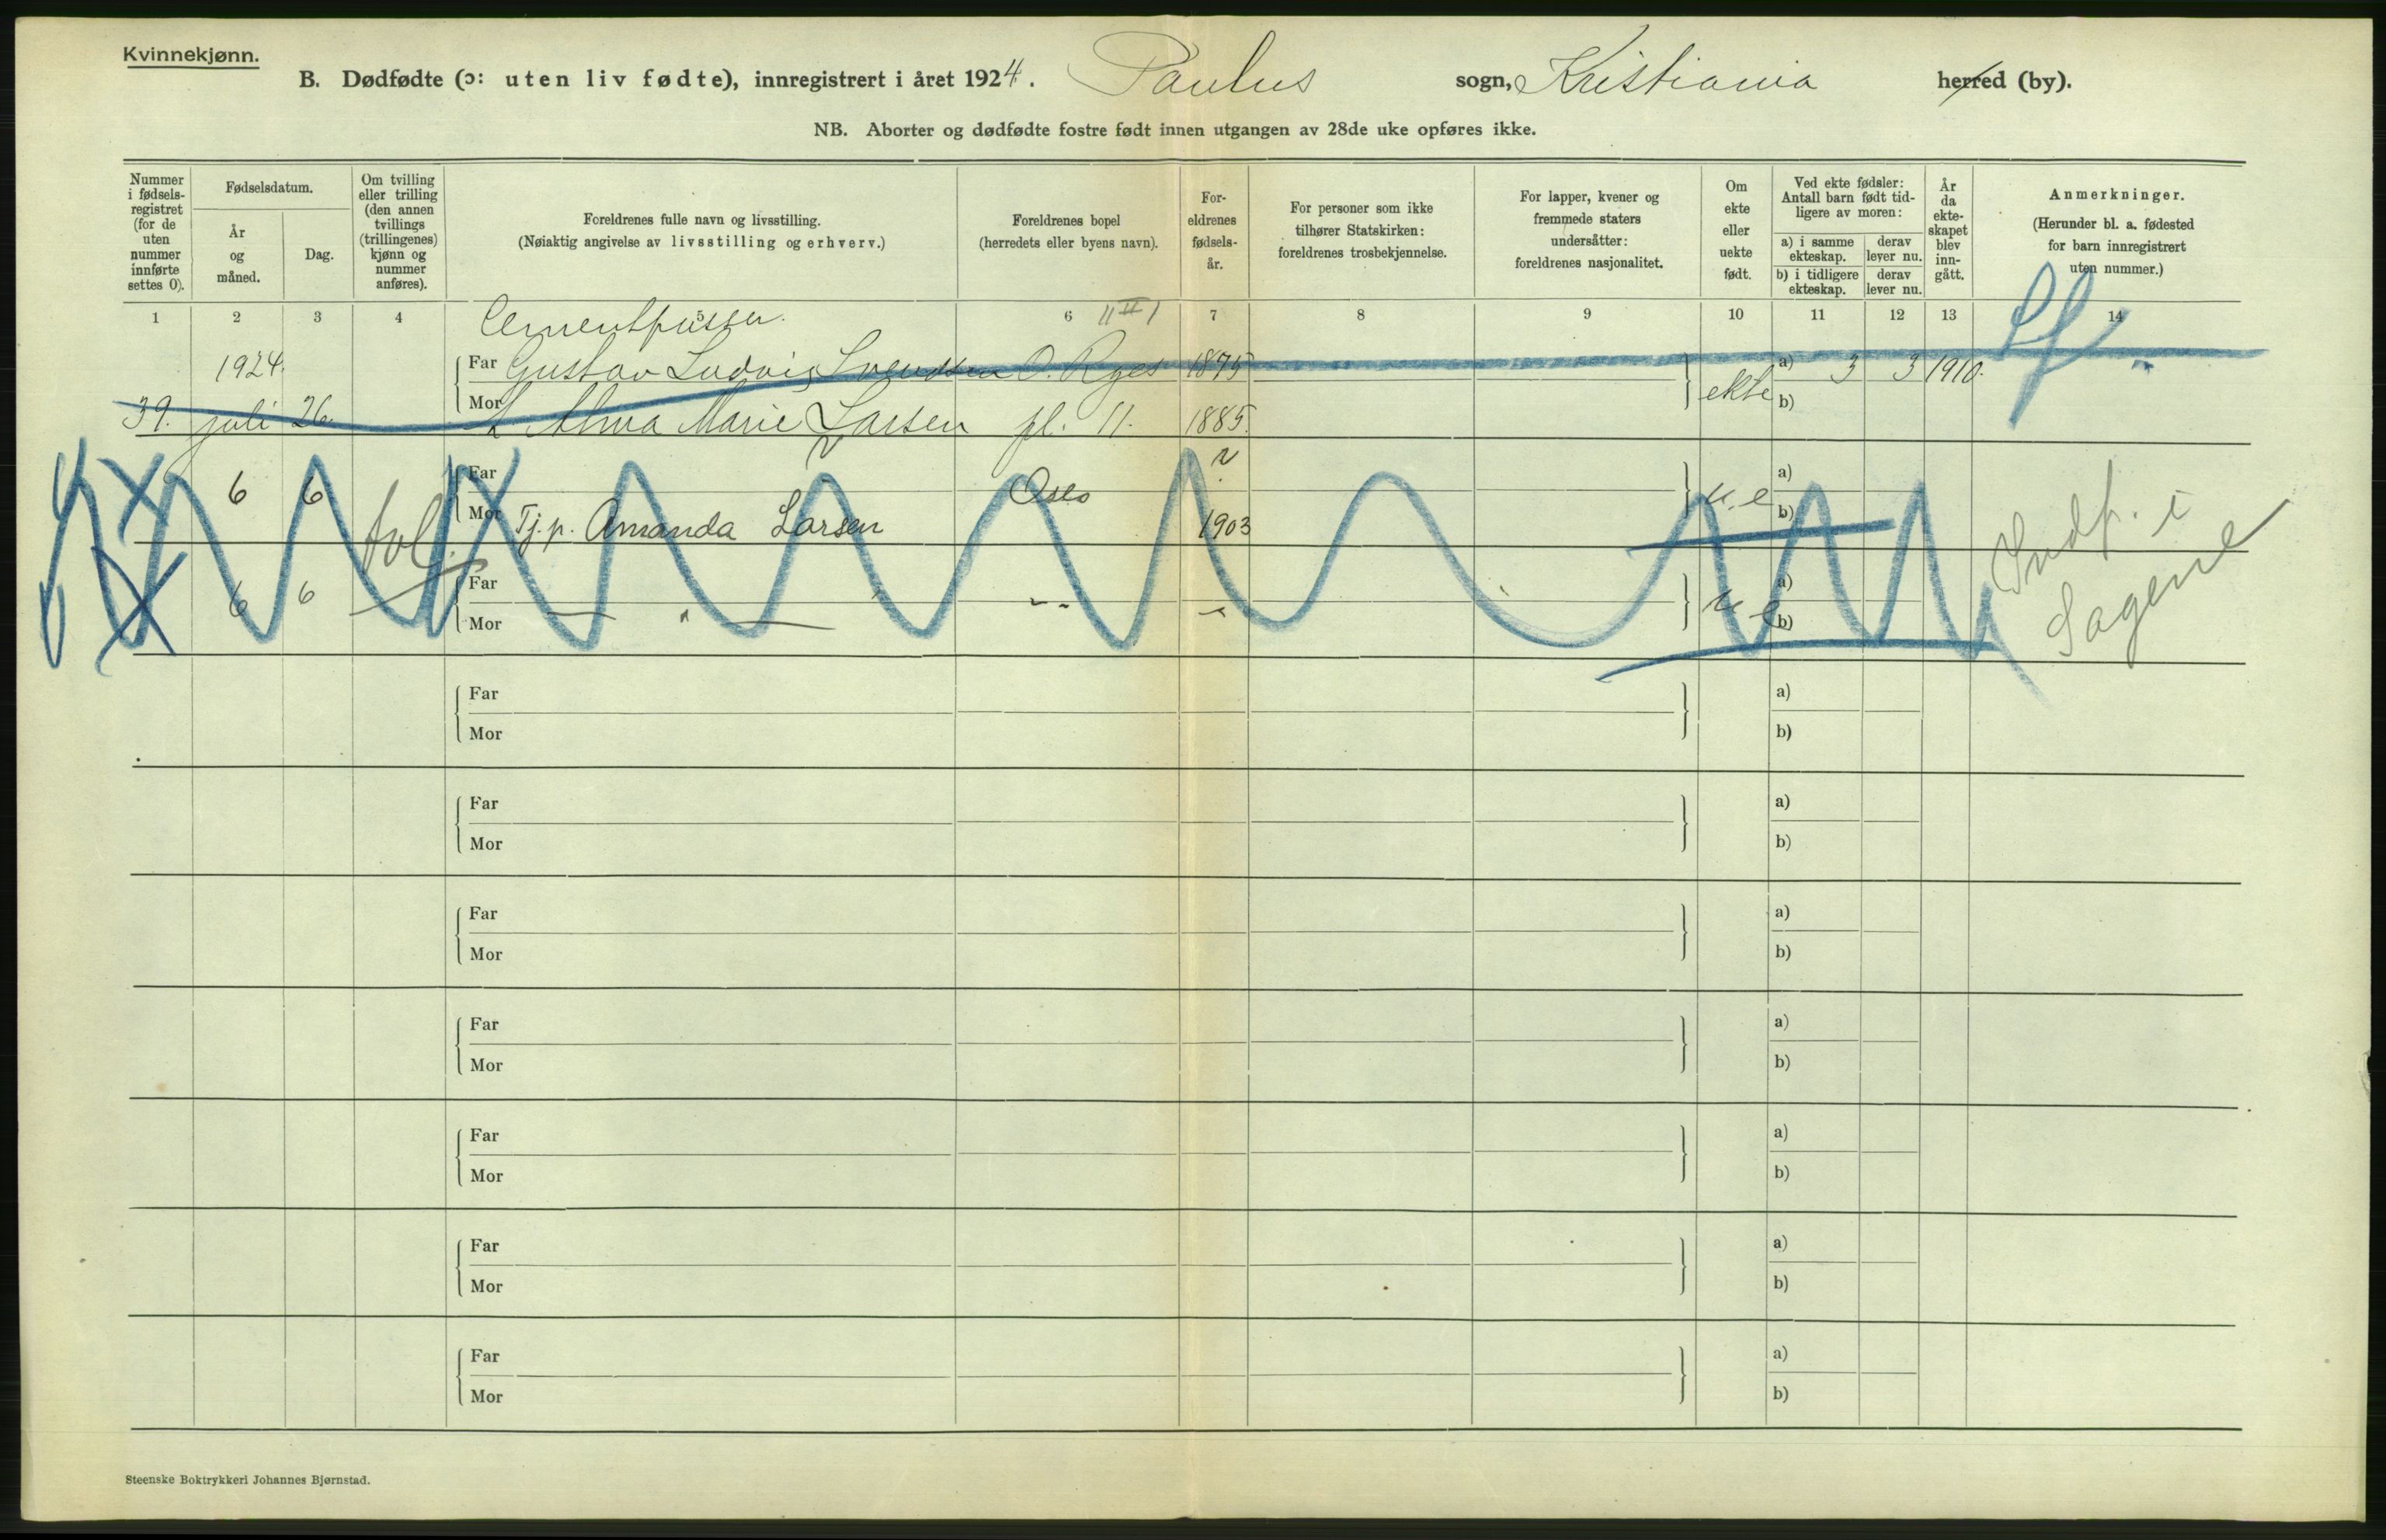 Kvinnekjønn.
B. Dødfødte (ɔ: uten liv fødte), innregistrert i året 1924. Paulus sogn, Kristiania herred (by).
NB. Aborter og dødfødte fostre født innen utgangen av 28de uke opføres ikke.
Nummer i fødsels-registret (for de uten nummer innførte settes 0).
Fødselsdatum.
År og måned.
Dag.
Om tvilling eller trilling (den annen tvillings (trillingenes) kjønn og nummer anføres).
Foreldrenes fulle navn og livsstilling.
(Nøiaktig angivelse av livsstilling og erhverv.)
Foreldrenes bopel
(herredets eller byens navn).
For-eldrenes fødsels-år.
For personer som ikke tilhører Statskirken: foreldrenes trosbekjennelse.
For lapper, kvener og fremmede staters undersåtter: foreldrenes nasjonalitet.
Om ekte eller uekte født.
Ved ekte fødsler: Antall barn født tid-ligere av moren:
a) i samme ekteskap.
derav lever nu.
b) i tidligere ekteskap.
derav lever nu.
År da ekte-skapet blev inn-gått.
Anmerkninger.
(Herunder bl. a. fødested for barn innregistrert uten nummer.)
1 2 3 4 5 6 7 8 9 10 11 12 13 14
Cementpusser.
1924. Far Gustav Ludvig Svendsen O. Ryes 1875 a) 3 3 1910.
39. juli 26. Mor Alma Marie Larsen pl. 11. 1885. ekte b)
6 6 Far Oslo ? u.e a)
Mor Tj.p. Amanda Larsen 1903 b)
tvl.
6 6 Far u e a)
Mor b)
Indf. i
Sagene
Far a)
Mor b)
Far a)
Mor b)
Far a)
Mor b)
Far a)
Mor b)
Far a)
Mor b)
Far a)
Mor b)
Far a)
Mor b)
Steenske Boktrykkeri Johannes Bjørnstad.